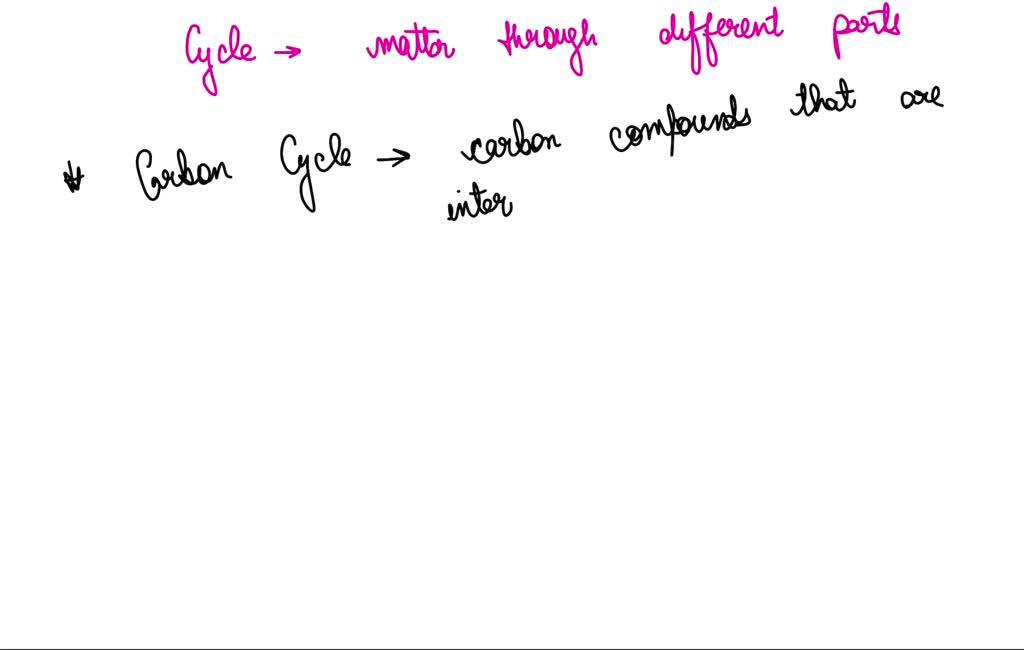 Cycle → matter through different parts
* Carbon Cycle → carbon compounds that are
inter